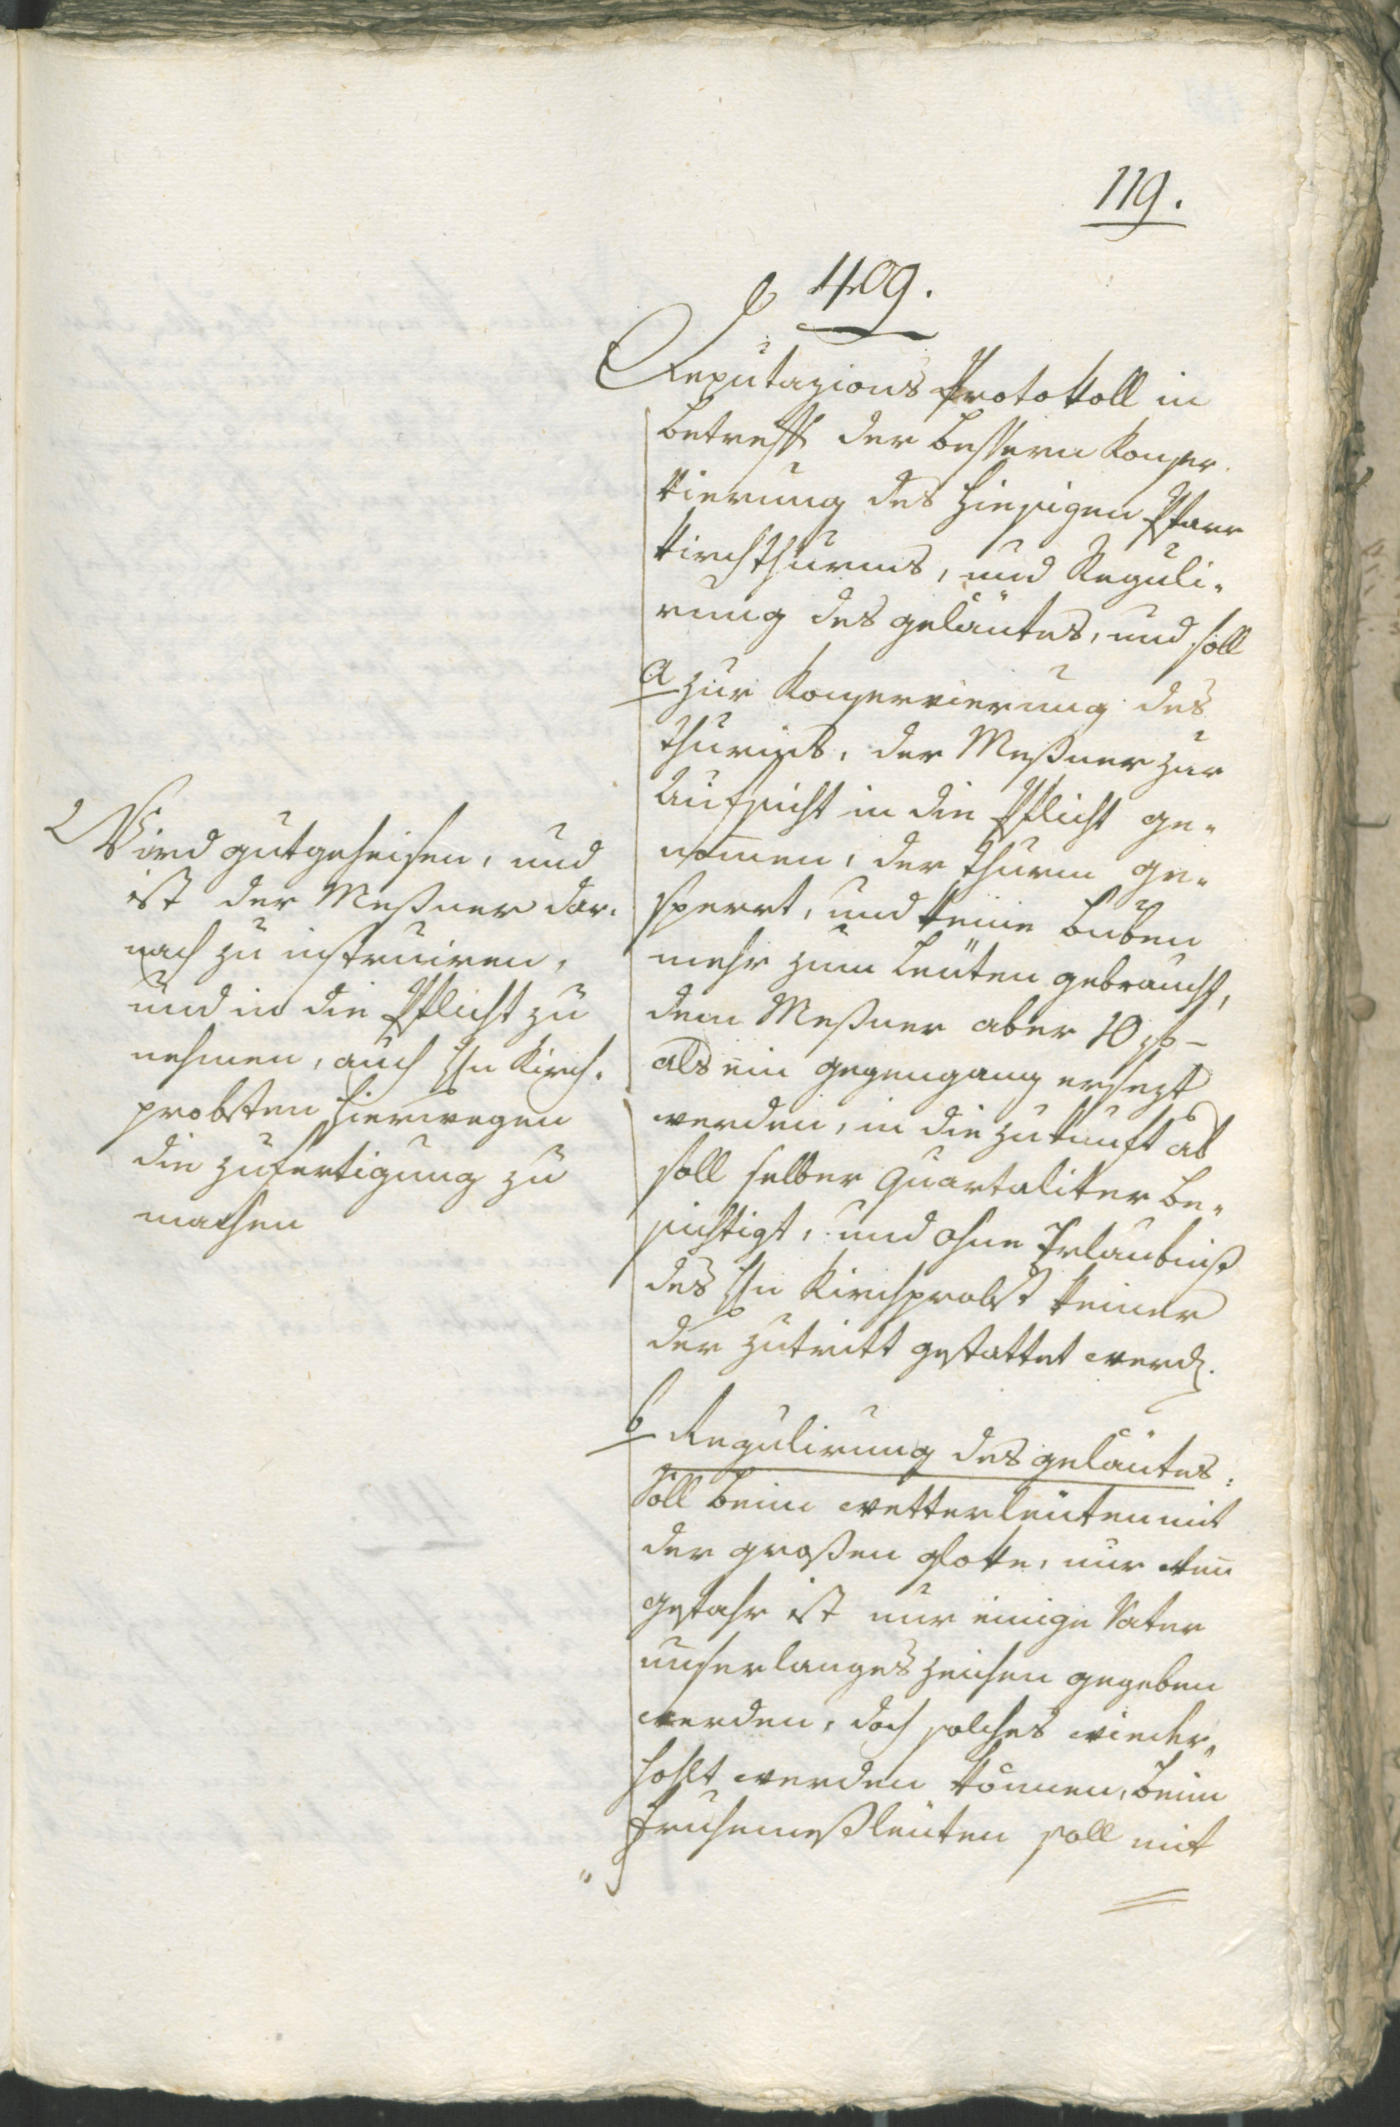 119.
409.
Deputazions Protokoll in
betreff der bessern Konser
vierung des hiesigen Pfarr
kirchthurms, und Reguli-
rung des geläutes, und soll
a zur Konservierung des
thurms, der Meßner zur
Aufsicht in die Pflicht ge-
nom̅en, der thurm ge-
sperrt, und keine buben
mehr zum leüten gebraucht,
dem Meßner aber 10 f –
als ein gegengang ersezt
werden, in die zukunft ab
soll selber Quartaliter be-
sichtigt, und ohne Erlaubniß
des Hn Kirchprobst keiner
der zutritt gestattet werd.
b Regulirung des geläutes:
Soll beim wetterleüten mit
der großen gloke, nur wen̅
gefahr ist nur einige Vater
unser langes zeichen gegeben
werden, doch solches wieder-
hohlt werden können, beim
fruhemeßleüten soll mit
Wird gutgeheisen, und
ist der Meßner dar-
nach zu instruiren,
und in die Pflicht zu
nehmen, auch Hn Kirch-
probsten hierwegen
die zufertigung zu
machen